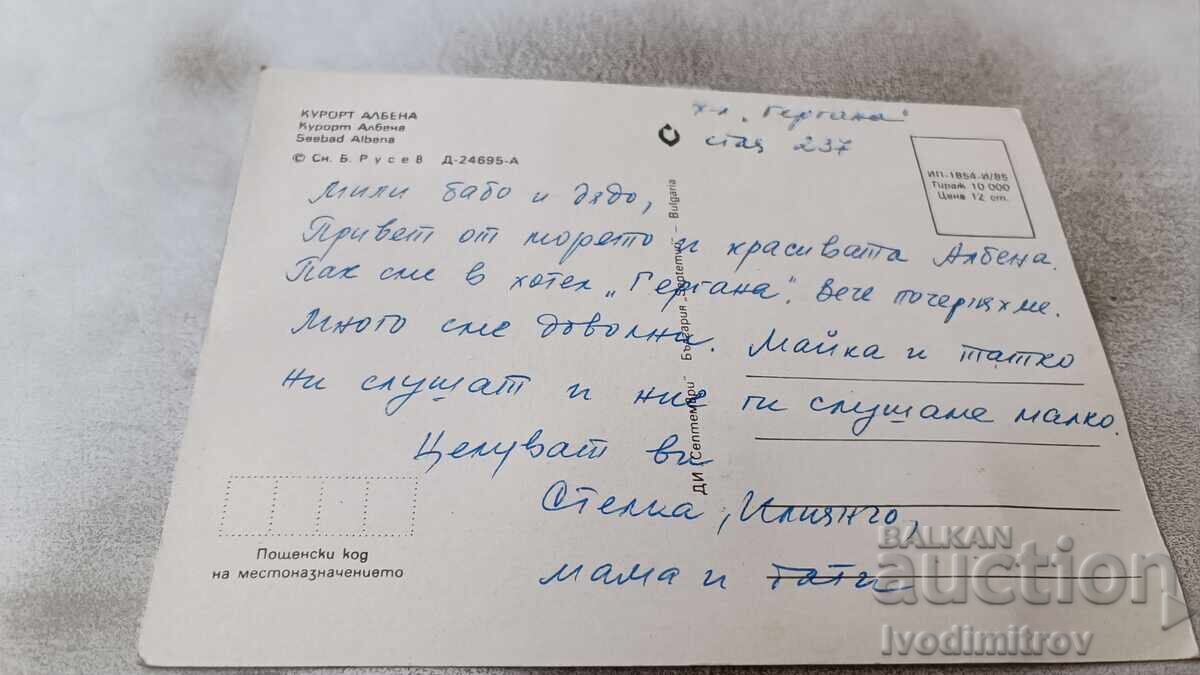 КУРОРТ АЛБЕНА
Курорт Албена
Seebad Albena
© Сн. Б. Русев Д-24695-А
х-л „Гергана"
стая 237
ИП-1854-И/85
Тираж 10 000
Цена 12 ст.
Мили бабо и дядо,
Привет от морето и красивата Албена.
Пак сме в хотел „Гергана". Вече почерняхме.
Много сме доволни. Майка и татко
ни слушат и ние ги слушаме малко.
Целуват ви
Стелиа, Илиянчо,
мама и тати
ДИ „Септември" България „Septemvri" – Bulgaria
Пощенски код
на местоназначението
BALKAN
auction
Ivodimitrov